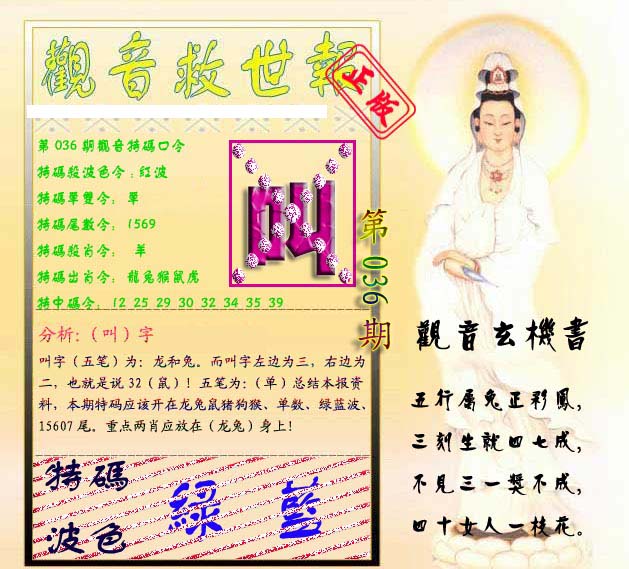 觀音救世報
正版
第 036 期觀音特碼口令
特碼殺波色令：紅波
特碼單雙令： 單
特碼尾數令： 1569
特碼殺肖令： 羊
特碼出肖令： 龍兔猴鼠虎
特中碼令： 12 25 29 30 32 34 35 39
叫
第 036 期
分析:（叫）字
叫字（五笔）为：龙和兔。而叫字左边为三，右边为
二，也就是说 32（鼠）！五笔为：（单）总结本报资
料，本期特码应该开在龙兔鼠猪狗猴、单数、绿蓝波、
15607 尾。重点两肖应放在（龙兔）身上！
特碼
波色
綠 藍
觀音玄機書
五行屬兔正彩鳳，
三刻生就四七成，
不見三一獎不成，
四十女人一枝花。